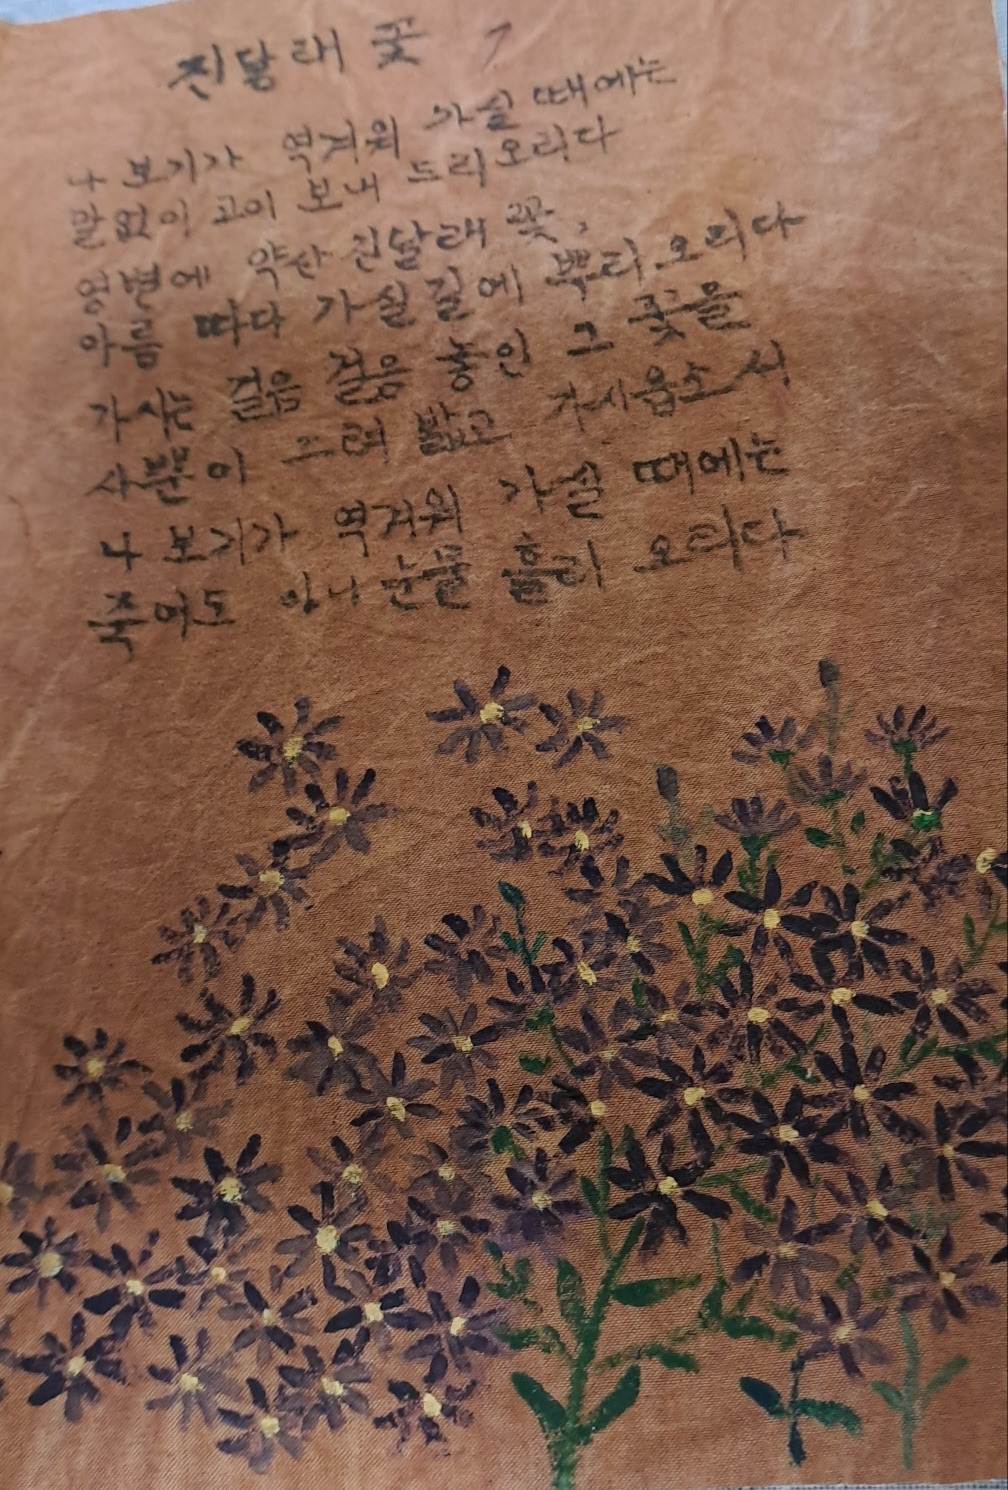 진달래 꽃
나 보기가 역겨워 가실 때에는
말없이 고이 보내 드리오리다
영변에 약산 진달래 꽃,
아름 따다 가실 길에 뿌리 오리다
가시는 걸음 걸음 놓인 그 꽃을
사뿐이 즈려 밟고 가시옵소서
나 보기가 역겨워 가실 때에는
죽어도 아니 눈물 흘리 오리다